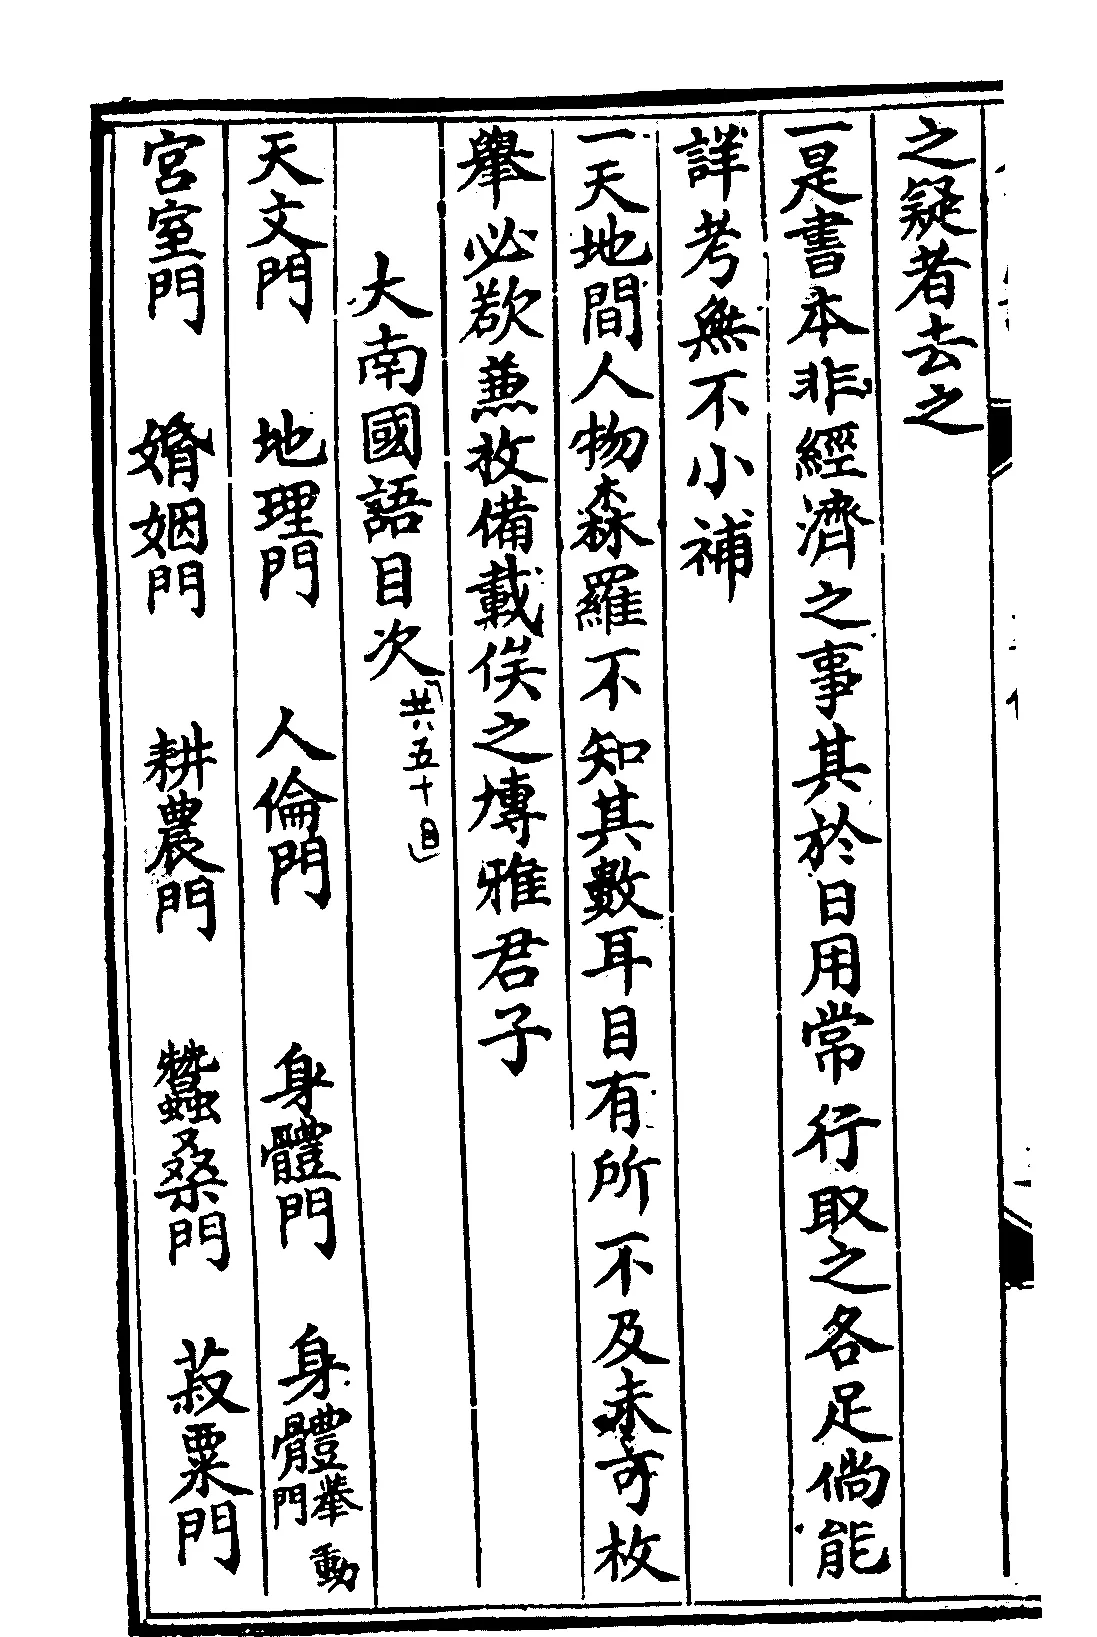 之疑者去之
一是書本非經濟之事其於日用常行取之各足倘能
詳考無不小補
一天地間人物森羅不知其數耳目有所不及未可枚
舉必欲兼收備載俟之博雅君子
大南國語目次「共五十目」
天文門 地理門 人倫門 身體門 身體舉動門
宮室門 婚姻門 耕農門 蠶桑門 菽粟門